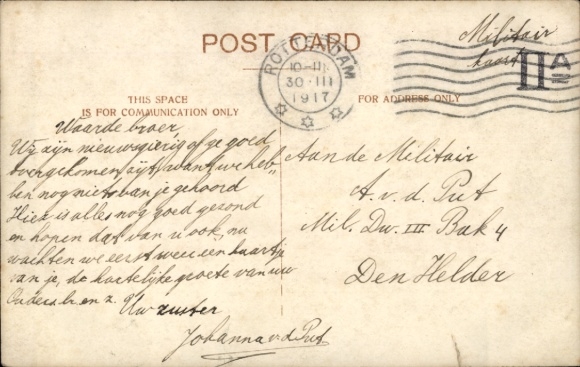 POST CARD
Militair
kaart
ROTTERDAM
10-11
30 · III
1917
II A
THIS SPACE
IS FOR COMMUNICATION ONLY
FOR ADDRESS ONLY
Waarde broer,
Wij zijn nieuwsgierig of ge goed
overgekomen zijt, want we heb„
ben nog niets van je gehoord
Hier is alles nog goed gezond
en hopen dat van u ook, nu
wachten we eerst weer een kaartje
van je, de hartelijke groete van uw
Ouders br. en z.
Uw zuster
Johanna v.d. Put
Aan de Militair
A. v. d. Put
Mil. Dw. III Bak 4
Den Helder